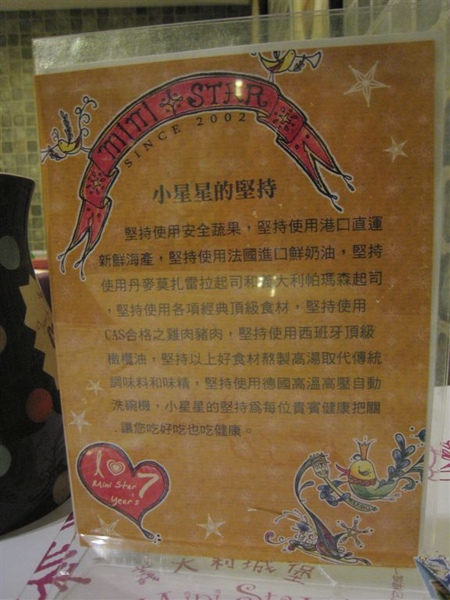 mini STAR
SINCE 2002
小星星的堅持
堅持使用安全蔬果，堅持使用港口直運
新鮮海產，堅持使用法國進口鮮奶油，堅持
使用丹麥莫扎雷拉起司和義大利帕瑪森起司
，堅持使用各項經典頂級食材，堅持使用
CAS合格之雞肉豬肉，堅持使用西班牙頂級
橄欖油，堅持以上好食材熬製高湯取代傳統
調味料和味精，堅持使用德國高溫高壓自動
洗碗機，小星星的堅持為每位貴賓健康把關
，讓您吃好吃也吃健康。
I
Mini Star 7
Year's
義大利城堡
Mini Star